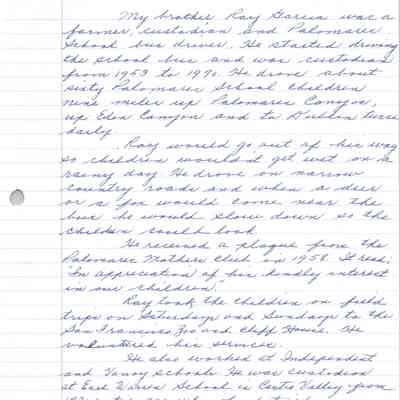 My brother Ray Garcia was a
farmer, custodian and Palomares
School bus driver. He started driving
the school bus and was custodian
from 1953 to 1970. He drove about
sixty Palomares School children
nine miles up Palomares Canyon,
up Eden Canyon and to Dublin twice
daily.
Ray would go out of his way
so children wouldn't get wet on a
rainy day. He drove on narrow
country roads and when a deer
or a fox would come near the
bus he would slow down so the
children could look.
He received a plaque from the
Palomares Mothers Club in 1958. It read,
"In appreciation of his kindly interest
in our children."
Ray took the children on field
trips on Saturdays and Sundays to the
San Francisco Zoo and Cliff House. He
volunteered his services.
He also worked at Independent
and Vannoy Schools. He was custodian
at Earl Warren School in Castro Valley from